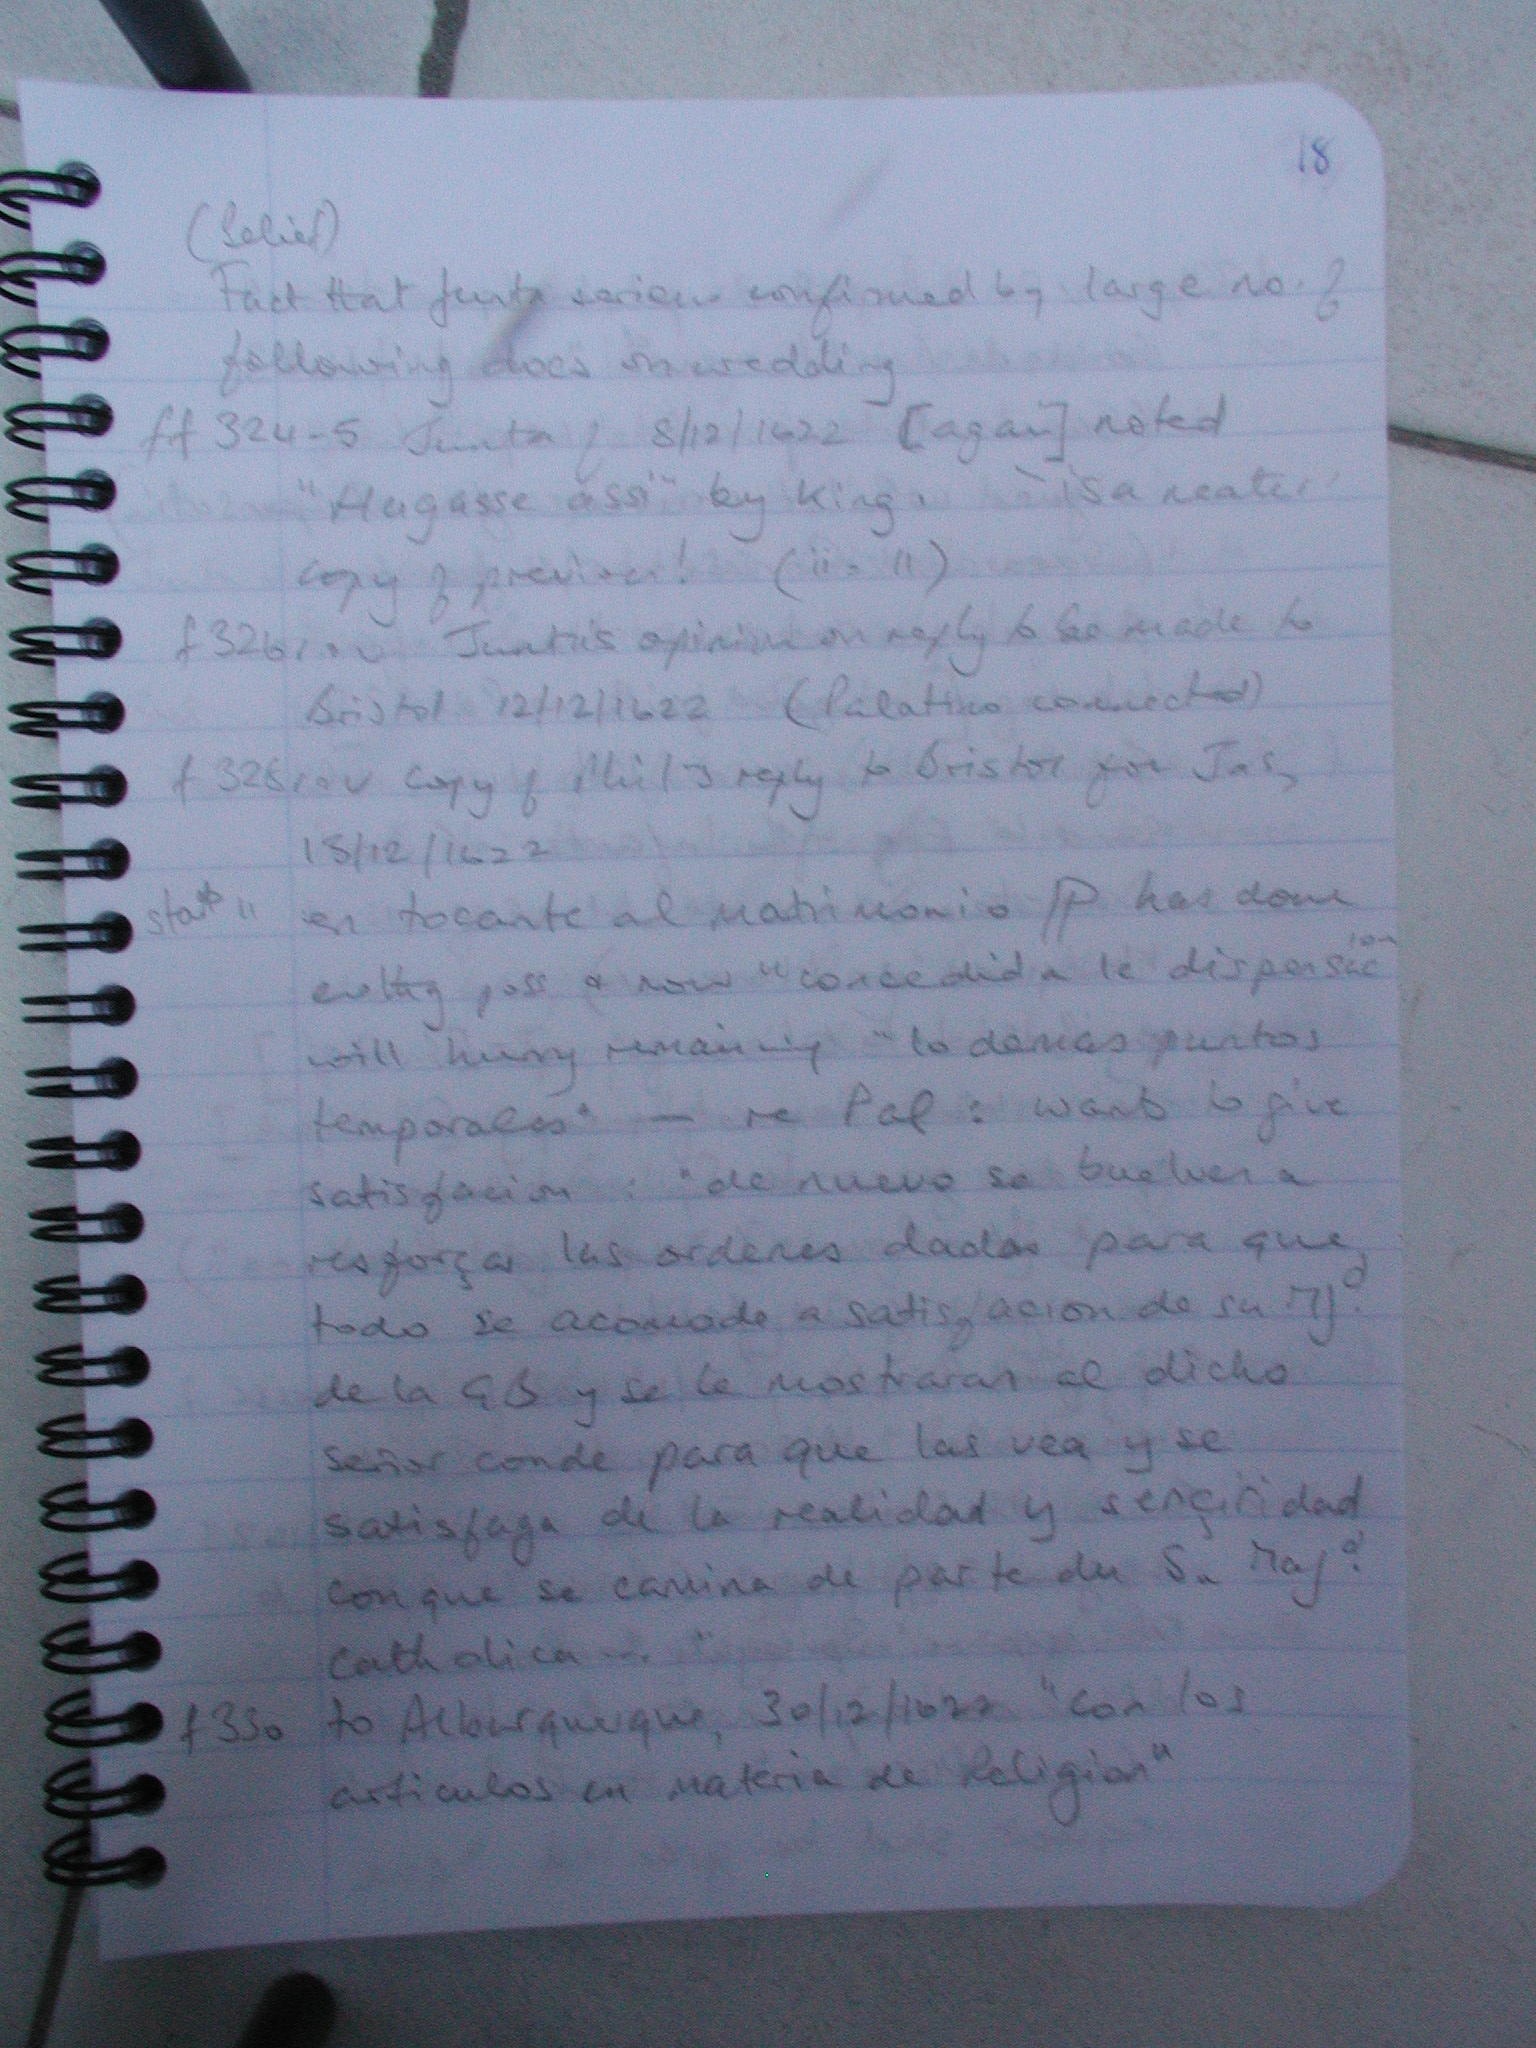 18
(belief)
Fact that Junta serious confirmed by large no. of
following docs on wedding
ff 324-5 Junta of 8/12/1622 [again] noted
"Hagasse assi" by King. is a neater
copy of previous! (ii. 11)
f 326 r.v Junta's opinion on reply to be made to
Bristol 12/12/1622 (Palatine connected)
f 328 r.v copy of Phil's reply to Bristol for Jas,
18/12/1622
start " en tocante al matrimonio PP has done
evthg poss & now "concedida le dispensacion
will hurry remaining "lo demas puntos
temporales" — re Pal: wants to give
satisfacion: "de nuevo se buelven a
resforçar las ordenes dadas para que
todo se acomode a satisfacion de su Mjd.
de la GB y se le mostraran al dicho
señor conde para que las vea y se
satisfaga de la realidad y sençiridad
con que se camina de parte du Su Majd.
Catholica ..."
f 330 to Alburquerque, 30/12/1622 "con los
articulos en materia de Religion"